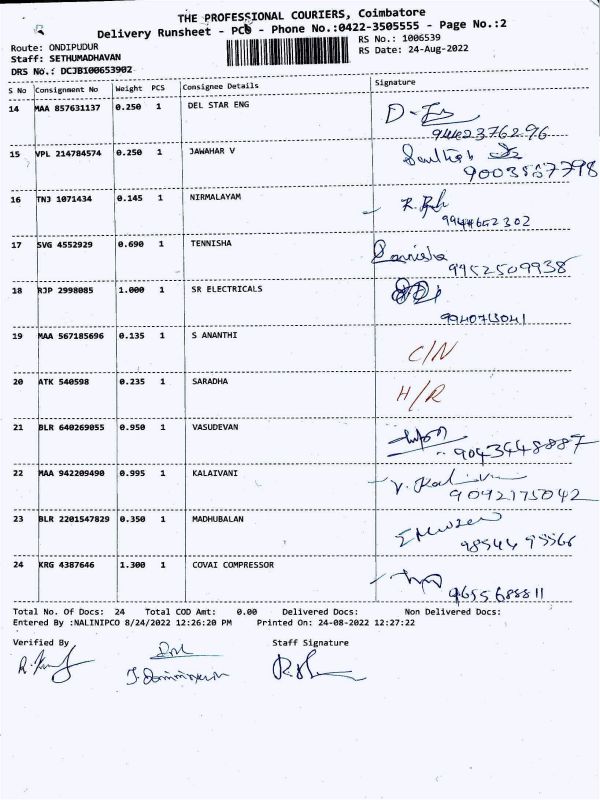 THE PROFESSIONAL COURIERS, Coimbatore
Delivery Runsheet - PCO - Phone No.:0422-3505555 - Page No.:2
Route: ONDIPUDUR
RS No.: 1006539
Staff: SETHUMADHAVAN
RS Date: 24-Aug-2022
DRS No.: DCJB100653902
S No Consignment No Weight PCS Consignee Details Signature
14 MAA 857631137 0.250 1 DEL STAR ENG
9442376296
15 VPL 214784574 0.250 1 JAWAHAR V
16 TNJ 1071434 0.145 1 NIRMALAYAM
9944652302
17 SVG 4552929 0.690 1 TENNISHA
9952509938
18 RJP 2998085 1.000 1 SR ELECTRICALS
9940713041
19 MAA 567185696 0.135 1 S ANANTHI C/N
20 ATK 540598 0.235 1 SARADHA H/R
21 BLR 640269055 0.950 1 VASUDEVAN
9043448887
22 MAA 942209490 0.995 1 KALAIVANI
9092175042
23 BLR 2201547829 0.350 1 MADHUBALAN
24 KRG 4387646 1.300 1 COVAI COMPRESSOR
9655688811
Total No. Of Docs: 24 Total COD Amt: 0.00 Delivered Docs: Non Delivered Docs:
Entered By :NALINIPCO 8/24/2022 12:26:20 PM Printed On: 24-08-2022 12:27:22
Verified By Staff Signature